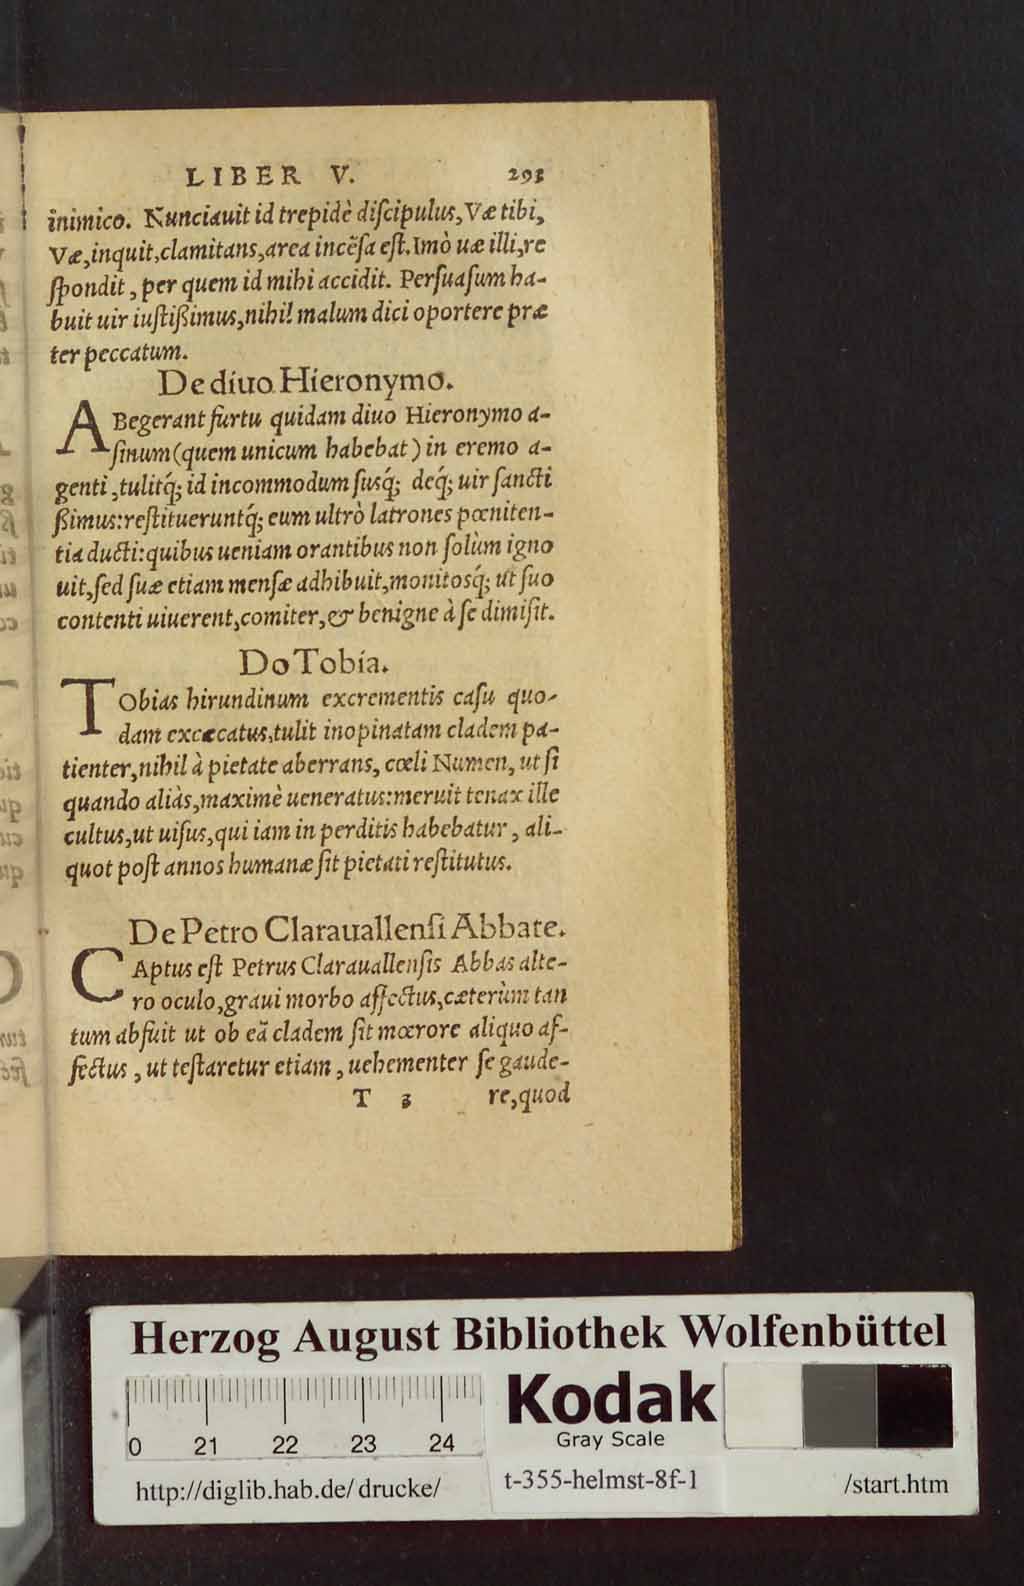 LIBER V. 293
inimico. Nunciauit id trepidè diſcipulus, Væ tibi,
Væ, inquit, clamitans, area incẽſa eſt. Imò uæ illi, re
ſpondit, per quem id mihi accidit. Perſuaſum ha-
buit uir iuſtiſsimus, nihil malum dici oportere præ
ter peccatum.
De diuo Hieronymo.
ABegerant furtu quidam diuo Hieronymo a-
ſinum (quem unicum habebat) in eremo a-
genti, tulitq́; id incommodum ſusq́; deq́; uir ſancti
ſsimus: reſtitueruntq́; eum ultrò latrones pœniten-
tia ducti: quibus ueniam orantibus non ſolùm igno
uit, ſed ſuæ etiam menſæ adhibuit, monitosq́; ut ſuo
contenti uiuerent, comiter, & benigne à ſe dimiſit.
Do Tobia.
TObias hirundinum excrementis caſu quo-
dam excæcatus, tulit inopinatam cladem pa-
tienter, nihil à pietate aberrans, cœli Numen, ut ſi
quando aliàs, maximè ueneratus: meruit tenax ille
cultus, ut uiſus, qui iam in perditis habebatur, ali-
quot poſt annos humanæ ſit pietati reſtitutus.
De Petro Clarauallenſi Abbate.
CAptus eſt Petrus Clarauallenſis Abbas alte-
ro oculo, graui morbo affectus, cæterùm tan
tum abfuit ut ob eã cladem ſit mœrore aliquo af-
fectus, ut teſtaretur etiam, uehementer ſe gaude-
T 3 re, quod
Herzog August Bibliothek Wolfenbüttel
0 21 22 23 24
Kodak
Gray Scale
http://diglib.hab.de/drucke/ t-355-helmst-8f-1 /start.htm